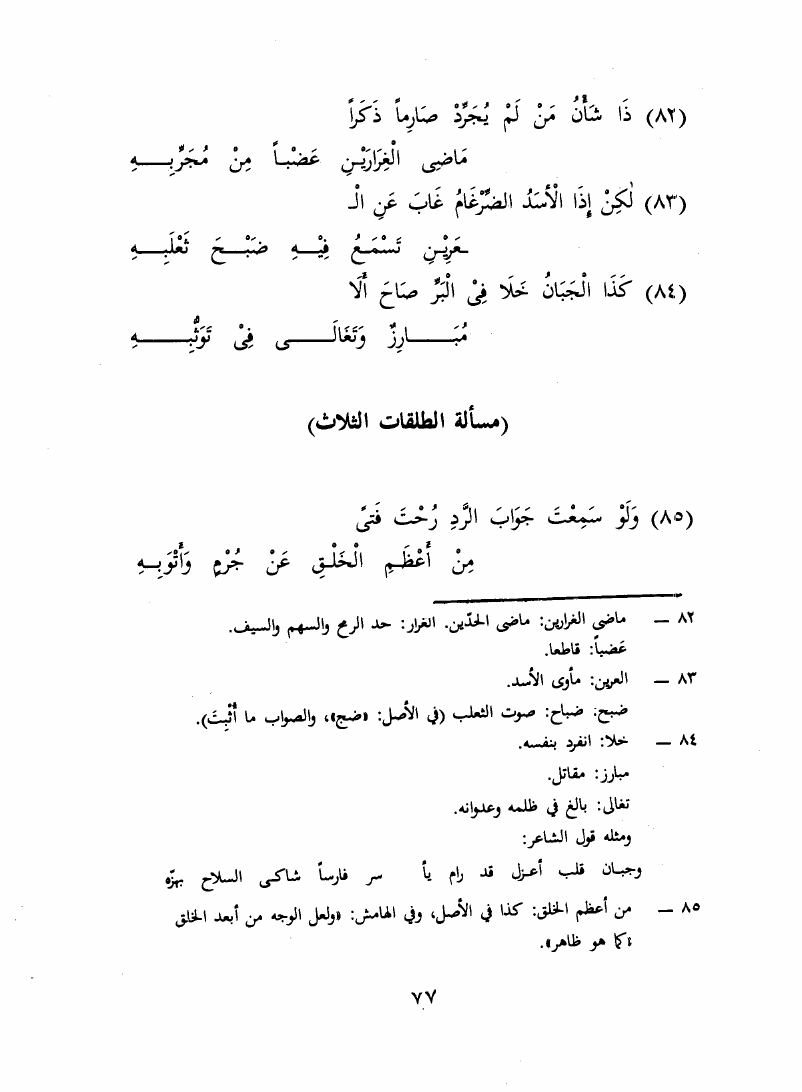 (٨٢) ذَا شَأْنُ مَنْ لَمْ يُجَرِّدْ صَارِماً ذَكَراً
مَاضِى الْغِرَارَيْنِ عَضْباً مِنْ مُجَرِّبِهِ
(٨٣) لٰكِنْ إِذَا الْأَسَدُ الضِّرْغَامُ غَابَ عَنِ الْـ
ـعَرِيْنِ تَسْمَعُ فِيْهِ ضَبْحَ ثَعْلَبِهِ
(٨٤) كَذَا الْجَبَانُ خَلَا فِيْ الْبَرِّ صَاحَ أَلَا
مُبَارِزٌ وَتَغَالَى فِيْ تَوَثُّبِهِ
(مسألة الطلقات الثلاث)
(٨٥) وَلَوْ سَمِعْتَ جَوَابَ الرَّدِ رُحْتَ فَتىً
مِنْ أَعْظَمِ الْخَلْقِ عَنْ جُرْمٍ وَأَتْوَبِهِ
٨٢ – ماضي الغرارين: ماضي الحدّين. الغرار: حد الرمح والسهم والسيف.
عَضباً: قاطعا.
٨٣ – العرين: مأوى الأسد.
ضبح: ضباح: صوت الثعلب (في الأصل: «ضج»، والصواب ما أُثْبِتَ).
٨٤ – خلا: انفرد بنفسه.
مبارز: مقاتل.
تغالى: بالغ في ظلمه وعدوانه.
ومثله قول الشاعر:
وجبان قلب أعزل قد رام يأ سر فارساً شاكى السلاح بهزّه
٨٥ – من أعظم الخلق: كذا في الأصل، وفي الهامش: «ولعل الوجه من أبعد الخلق
كما هو ظاهر».
٧٧